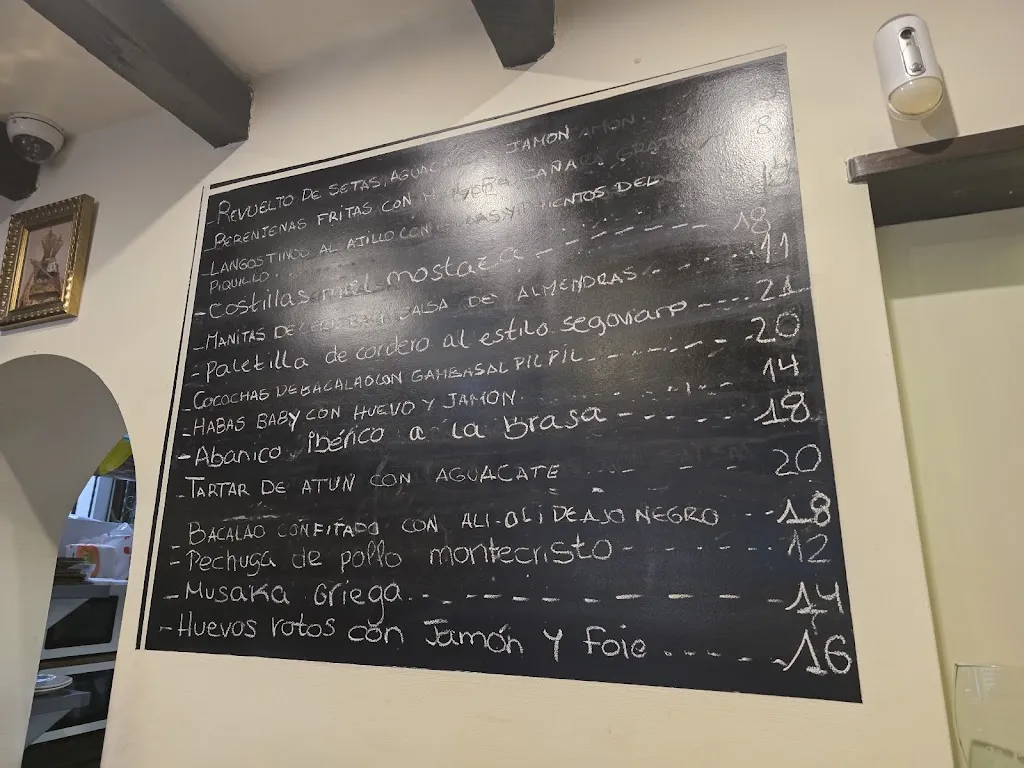 - REVUELTO DE SETAS, JAMON
- BERENJENAS FRITAS CON CAÑA 8
- LANGOSTINOS AL AJILLO CON DEL
PIQUILLO
- Costillas miel mostaza ------- 18
- MANITAS DE SALSA DE ALMENDRAS. . . . . 11
- Paletilla de cordero al estilo segoviano ---- 21
- COCOCHAS DE BACALAO CON GAMBAS AL PIL PIL - - - - - - 20
- HABAS BABY CON HUEVO Y JAMON. 14
- Abanico ibérico a la brasa - - - - - 18
- TARTAR DE ATUN CON AGUACATE 20
- BACALAO CONFITADO CON ALI-OLI DE AJO NEGRO - - - 18
- Pechuga de pollo montecristo - - - - - - 12
- Musaka Griega. - - - - - - - - - - 14
- Huevos rotos con Jamón y Foie . . . . - - - - 16